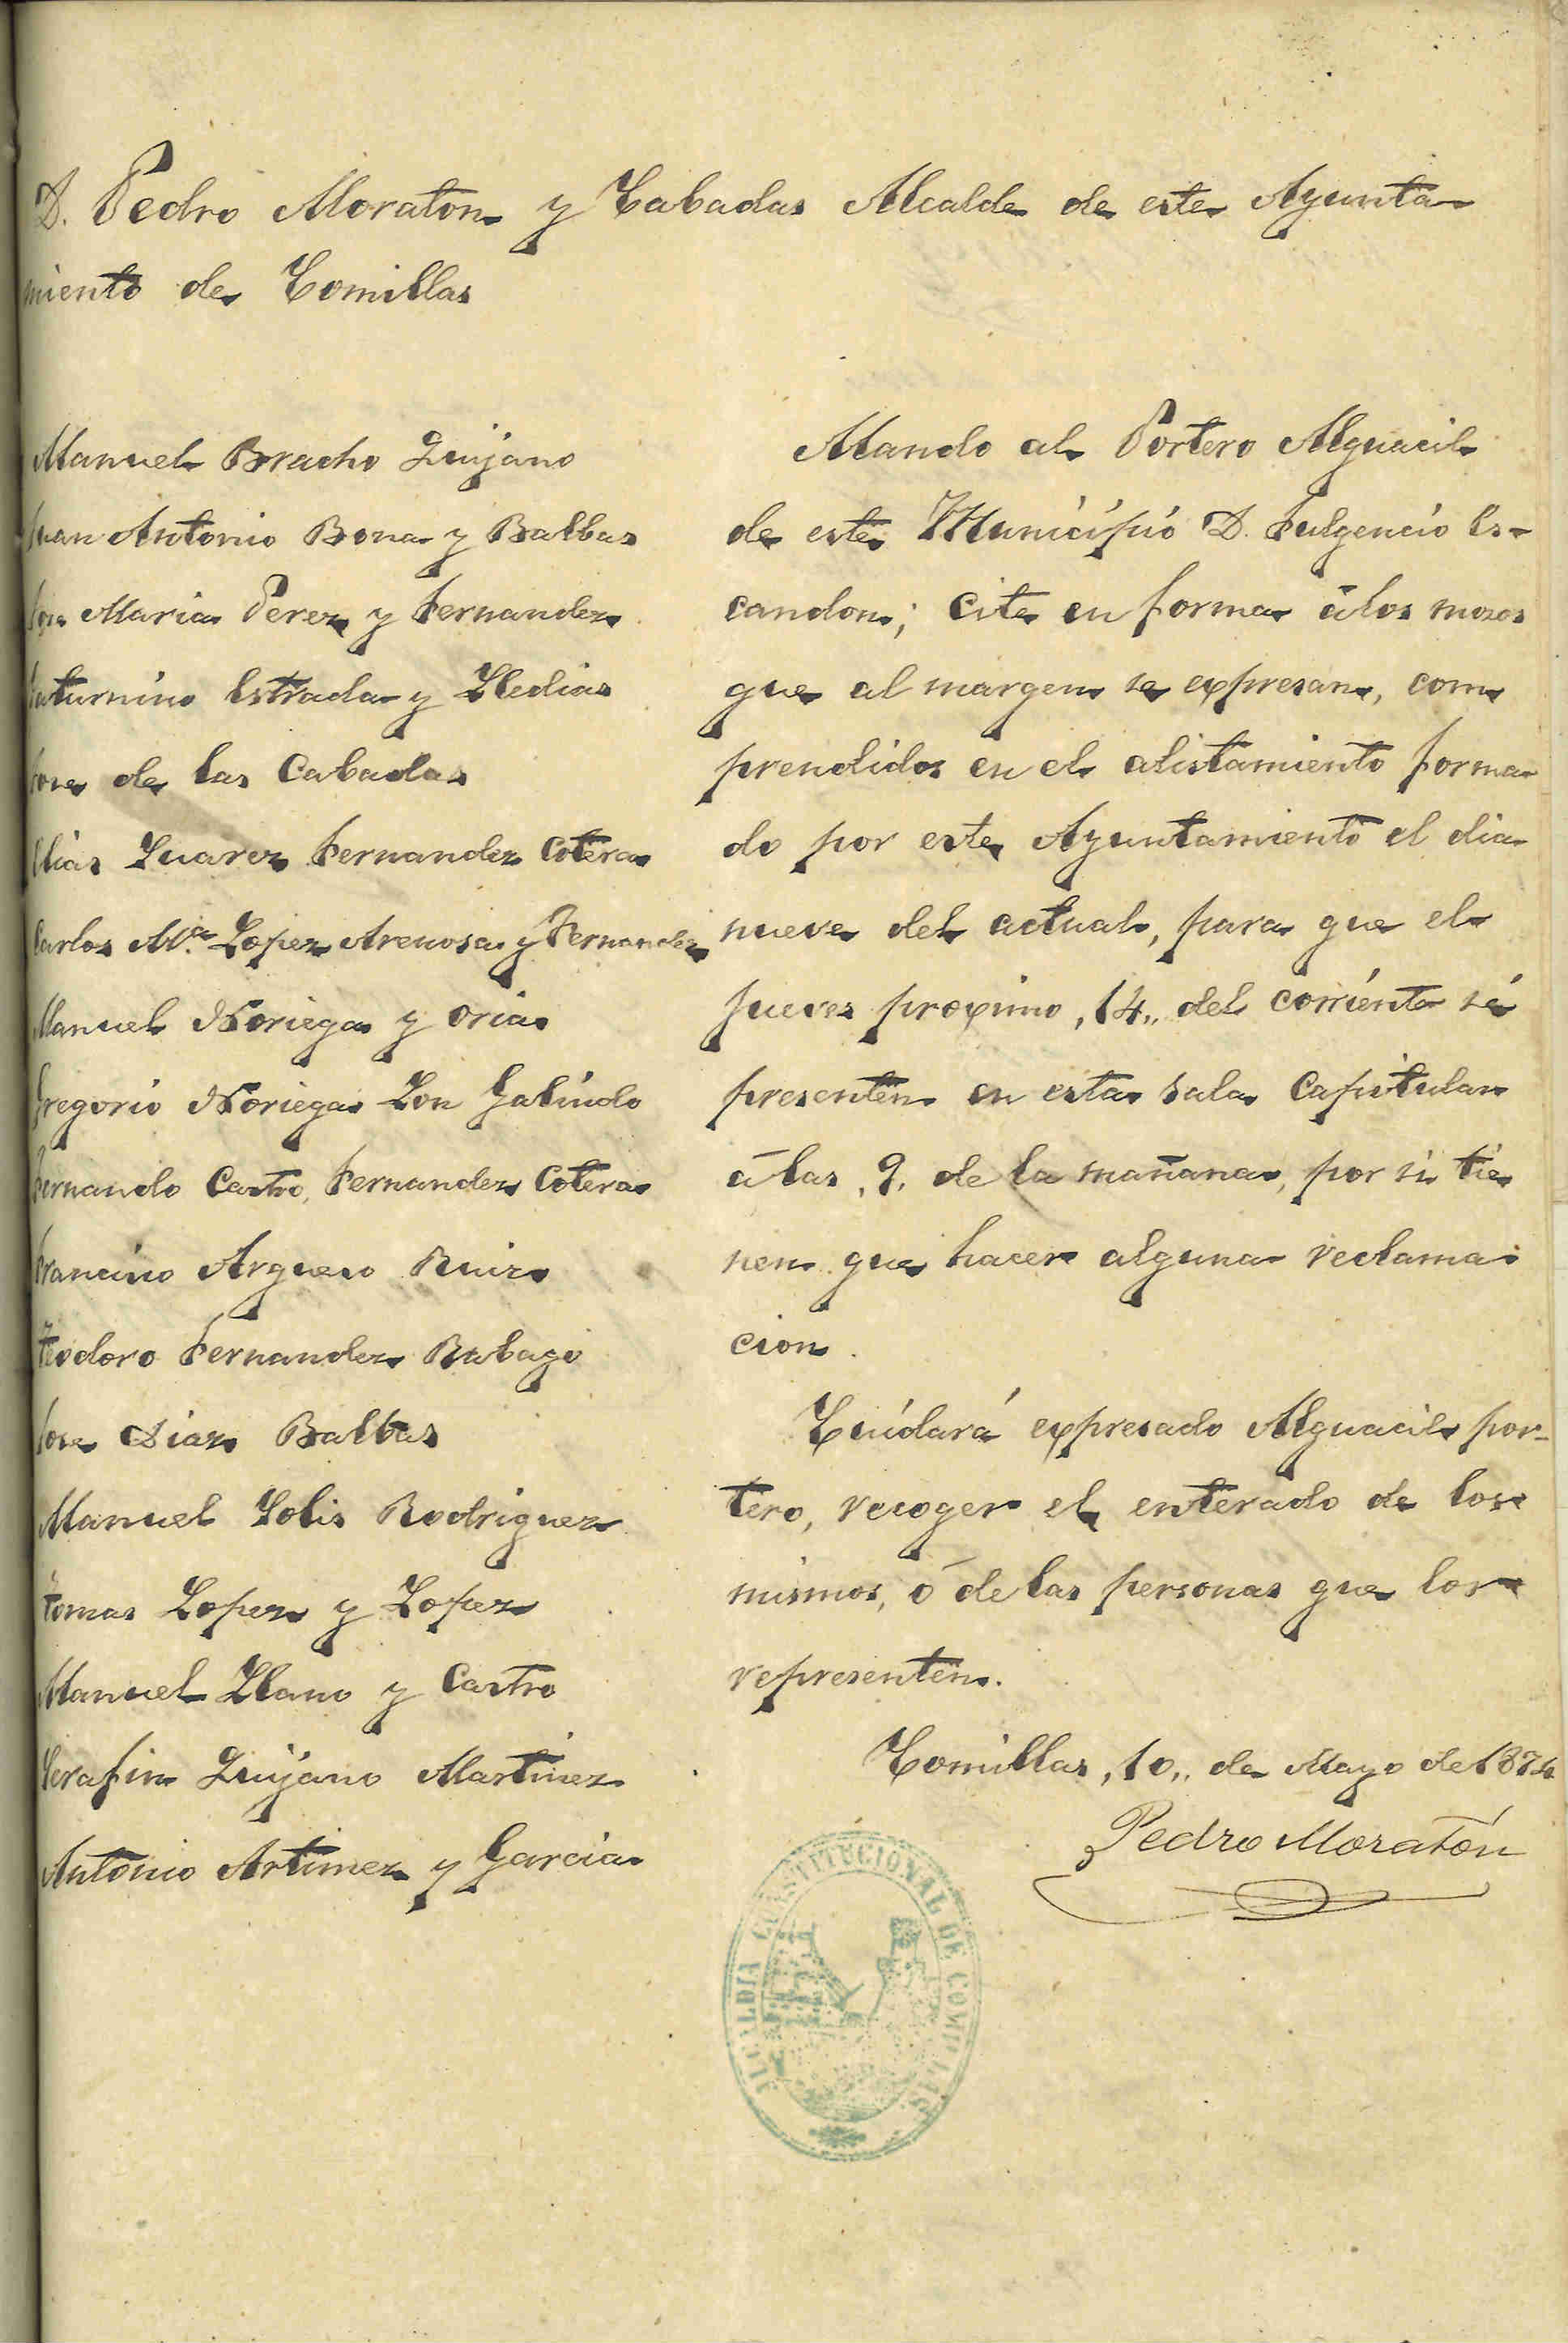 D. Pedro Moraton y Cabadas Alcalde de este Ayunta-
miento de Comillas
Manuel Bracho Quijano
Juan Antonio Bona y Balbas
Jose Maria Perez y Fernandez
Saturnino Estrada y Lledias
Jose de las Cabadas
Elias Suarez Fernandez Cotera
Carlos M.ª Lopez Arenosa y Fernandez
Manuel Noriega y Oria
Gregorio Noriega Zon Galindo
Fernando Castro, Fernandez Cotera
Francisco Argueso Ruiz
Teodoro Fernandez Rabago
Jose Diaz Balbas
Manuel Solis Rodriguez
Tomas Lopez y Lopez
Manuel Llano y Castro
Serafin Quijano Martinez
Antonio Artimez y Garcia
Mando al Portero Alguacil
de este Municipio D. Fulgencio Es-
candon; cite en forma á los mozos
que al margen se expresan, com
prendidos en el alistamiento forma-
do por este Ayuntamiento el dia
nueve del actual, para que el
jueves proximo, 14,, del corriente se
presenten en esta Sala Capitular
á las, 9, de la mañana, por si tie
nen que hacer alguna reclama
cion.
Cuidará expresado Alguacil por-
tero, recoger el enterado de los
mismos, ó de las personas que los
representen.
Comillas, 10,, de Mayo de 1874
Pedro Moratón
ALCALDIA CONSTITUCIONAL DE COMILLAS